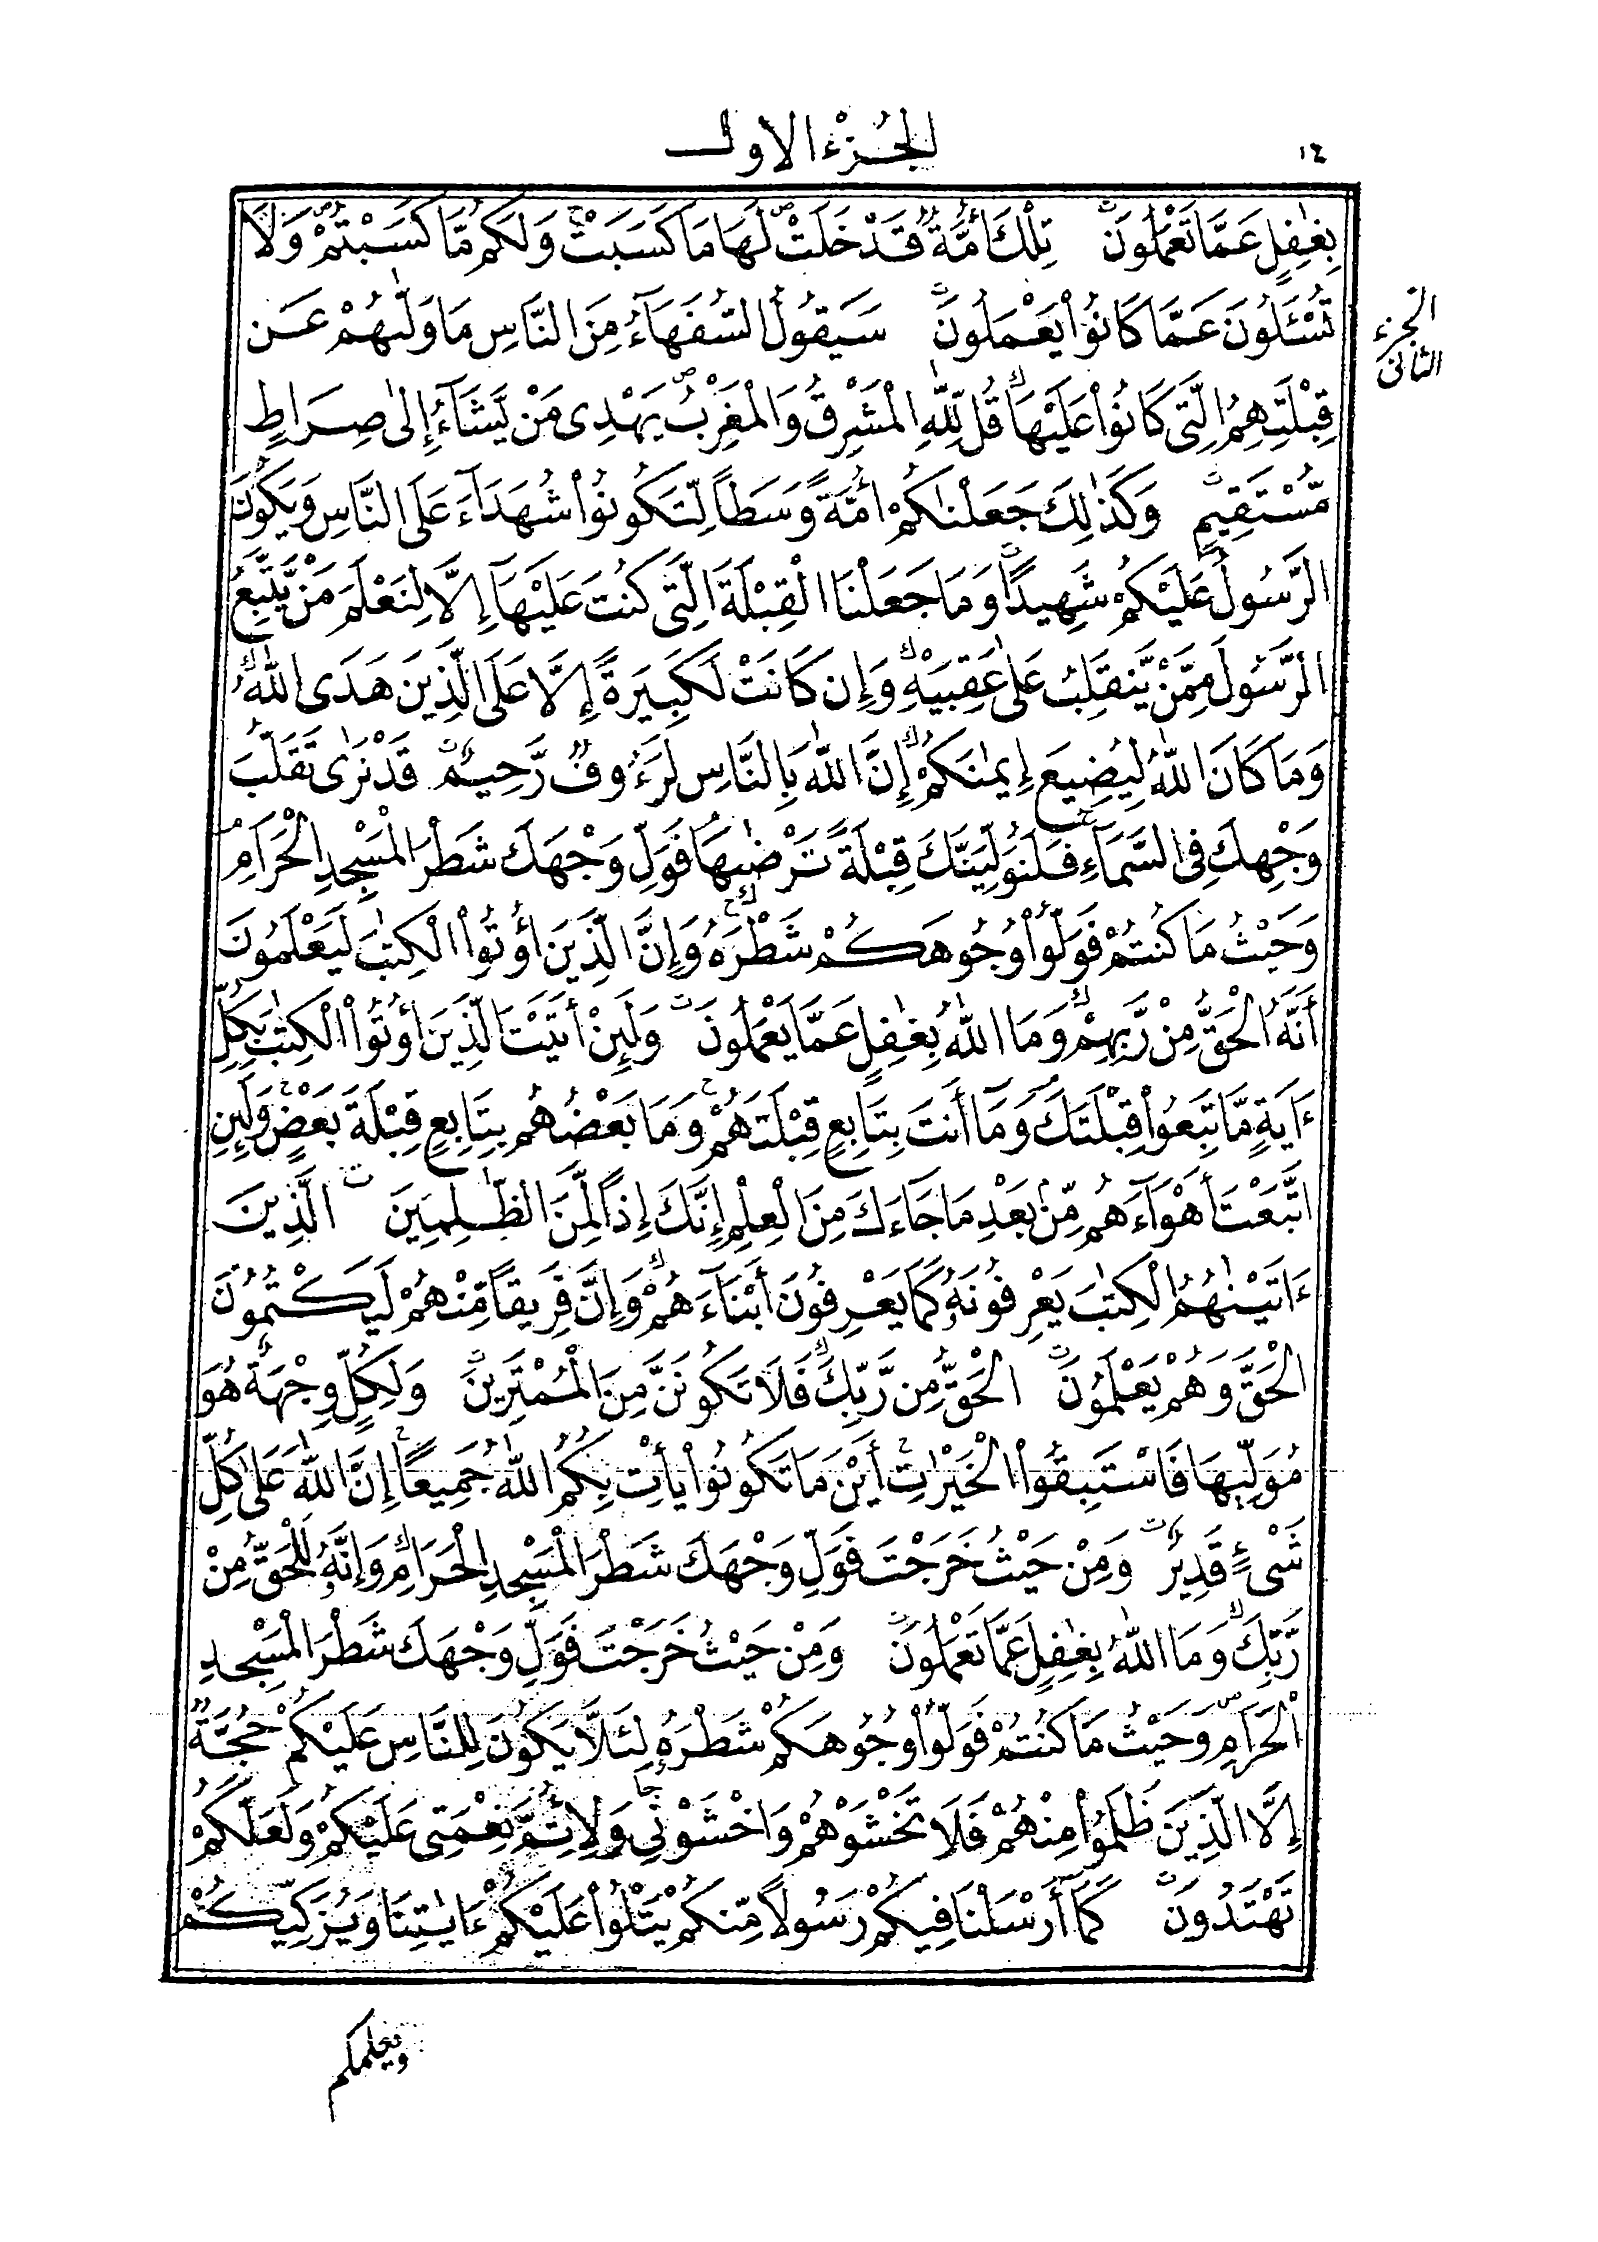 الجُزْء الاول
١٤
بِغَٰفِلٍ عَمَّا تَعْمَلُونَ تِلْكَ أُمَّةٌ قَدْ خَلَتْ لَهَا مَا كَسَبَتْ وَلَكُم مَّا كَسَبْتُمْ وَلَا
تُسْـَٔلُونَ عَمَّا كَانُواْ يَعْمَلُونَ سَيَقُولُ السُّفَهَآءُ مِنَ النَّاسِ مَا وَلَّىٰهُمْ عَن
الجزء
الثانى
قِبْلَتِهِمُ الَّتِى كَانُواْ عَلَيْهَا قُل لِّلَّهِ الْمَشْرِقُ وَالْمَغْرِبُ يَهْدِى مَنْ يَّشَآءُ إِلَىٰ صِرَاطٍ
مُّسْتَقِيمٍ وَكَذَٰلِكَ جَعَلْنَٰكُمْ أُمَّةً وَسَطًا لِّتَكُونُواْ شُهَدَآءَ عَلَى النَّاسِ وَيَكُونَ
الرَّسُولُ عَلَيْكُمْ شَهِيدًا وَمَا جَعَلْنَا الْقِبْلَةَ الَّتِى كُنتَ عَلَيْهَآ إِلَّا لِنَعْلَمَ مَنْ يَّتَّبِعُ
الرَّسُولَ مِمَّنْ يَّنقَلِبُ عَلَىٰ عَقِبَيْهِ وَإِن كَانَتْ لَكَبِيرَةً إِلَّا عَلَى الَّذِينَ هَدَى اللَّهُ
وَمَا كَانَ اللَّهُ لِيُضِيعَ إِيمَٰنَكُمْ إِنَّ اللَّهَ بِالنَّاسِ لَرَءُوفٌ رَّحِيمٌ قَدْ نَرَىٰ تَقَلُّبَ
وَجْهِكَ فِى السَّمَآءِ فَلَنُوَلِّيَنَّكَ قِبْلَةً تَرْضَىٰهَا فَوَلِّ وَجْهَكَ شَطْرَ الْمَسْجِدِ الْحَرَامِ
وَحَيْثُ مَا كُنتُمْ فَوَلُّواْ وُجُوهَكُمْ شَطْرَهُ وَإِنَّ الَّذِينَ أُوتُواْ الْكِتَٰبَ لَيَعْلَمُونَ
أَنَّهُ الْحَقُّ مِنْ رَّبِّهِمْ وَمَا اللَّهُ بِغَٰفِلٍ عَمَّا يَعْمَلُونَ وَلَئِنْ أَتَيْتَ الَّذِينَ أُوتُواْ الْكِتَٰبَ بِكُلِّ
ءَايَةٍ مَّا تَبِعُواْ قِبْلَتَكَ وَمَآ أَنتَ بِتَابِعٍ قِبْلَتَهُمْ وَمَا بَعْضُهُم بِتَابِعٍ قِبْلَةَ بَعْضٍ وَلَئِنِ
اتَّبَعْتَ أَهْوَآءَهُم مِّنۢ بَعْدِ مَا جَآءَكَ مِنَ الْعِلْمِ إِنَّكَ إِذًا لَّمِنَ الظَّٰلِمِينَ الَّذِينَ
ءَاتَيْنَٰهُمُ الْكِتَٰبَ يَعْرِفُونَهُ كَمَا يَعْرِفُونَ أَبْنَآءَهُمْ وَإِنَّ فَرِيقًا مِّنْهُمْ لَيَكْتُمُونَ
الْحَقَّ وَهُمْ يَعْلَمُونَ الْحَقُّ مِن رَّبِّكَ فَلَا تَكُونَنَّ مِنَ الْمُمْتَرِينَ وَلِكُلٍّ وِجْهَةٌ هُوَ
مُوَلِّيهَا فَاسْتَبِقُواْ الْخَيْرَٰتِ أَيْنَ مَا تَكُونُواْ يَأْتِ بِكُمُ اللَّهُ جَمِيعًا إِنَّ اللَّهَ عَلَىٰ كُلِّ
شَىْءٍ قَدِيرٌ وَمِنْ حَيْثُ خَرَجْتَ فَوَلِّ وَجْهَكَ شَطْرَ الْمَسْجِدِ الْحَرَامِ وَإِنَّهُ لَلْحَقُّ مِنْ
رَّبِّكَ وَمَا اللَّهُ بِغَٰفِلٍ عَمَّا تَعْمَلُونَ وَمِنْ حَيْثُ خَرَجْتَ فَوَلِّ وَجْهَكَ شَطْرَ الْمَسْجِدِ
الْحَرَامِ وَحَيْثُ مَا كُنتُمْ فَوَلُّواْ وُجُوهَكُمْ شَطْرَهُ لِئَلَّا يَكُونَ لِلنَّاسِ عَلَيْكُمْ حُجَّةٌ
إِلَّا الَّذِينَ ظَلَمُواْ مِنْهُمْ فَلَا تَخْشَوْهُمْ وَاخْشَوْنِى وَلِأُتِمَّ نِعْمَتِى عَلَيْكُمْ وَلَعَلَّكُمْ
تَهْتَدُونَ كَمَآ أَرْسَلْنَا فِيكُمْ رَسُولًا مِّنكُمْ يَتْلُواْ عَلَيْكُمْ ءَايَٰتِنَا وَيُزَكِّيكُمْ
ويعلمكم